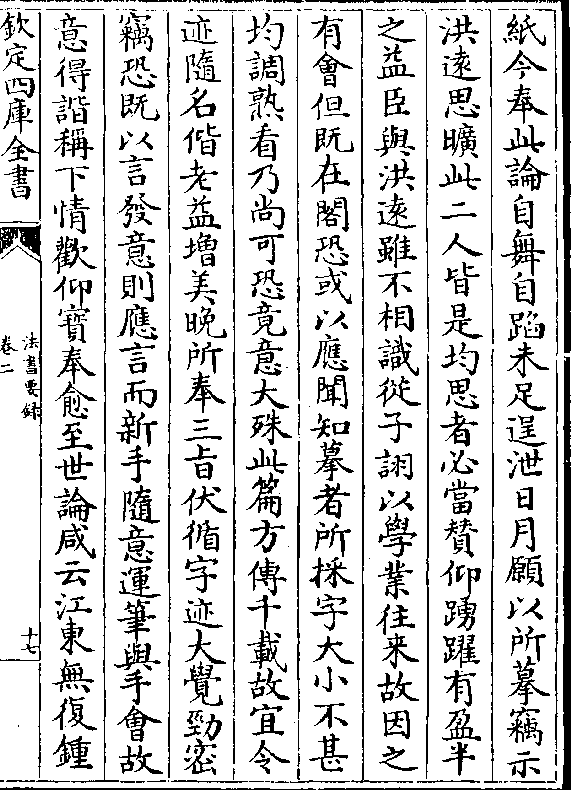 紙今奉此論自舞自蹈未足逞泄日月願以所摹竊示
洪遠思曠此二人皆是均思者必當賛仰踴躍有盈半
之益臣與洪遠雖不相識從子詡以學業往来故因之
有會但既在閣恐或以應聞知摹者所採字大小不甚
均調熟看乃尚可恐竟意大殊此篇方傳千載故宜令
迹隨名偕老益増美晚所奉三旨伏循字迹大覺勁密
竊恐既以言發意則應言而新手隨意運筆與手會故
意得諧稱下情歡仰寶奉愈至世論咸云江東無復鍾
欽定四庫全書
法書要録
卷二
十七